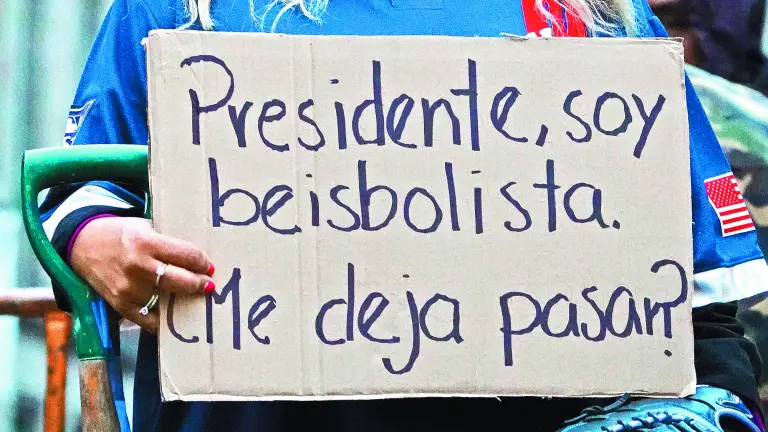 Presidente, soy
beisbolista.
¿Me deja pasar?